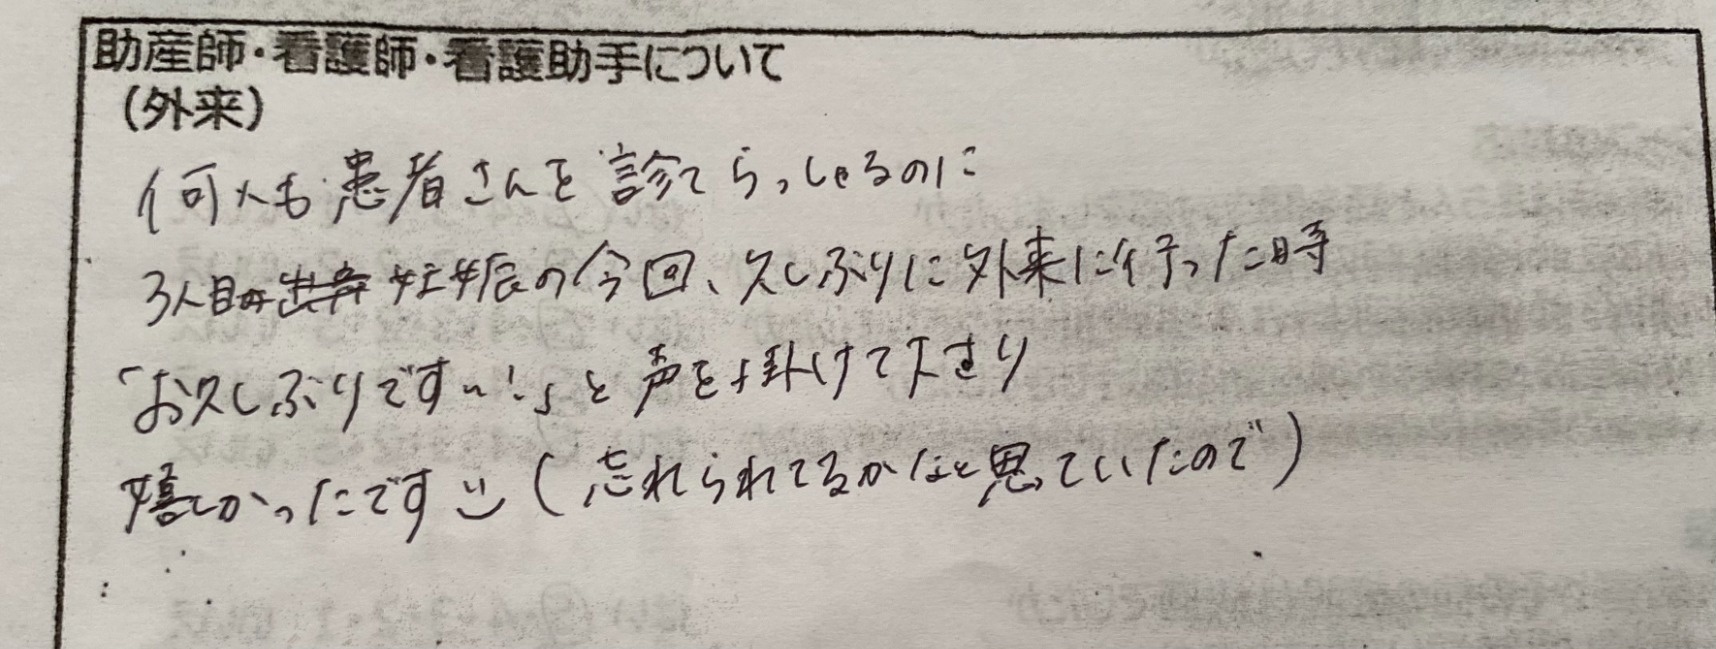 助産師・看護師・看護助手について
（外来）
何人も患者さんを診てらっしゃるのに
3人目の妊娠の今回、久しぶりに外来に行った時
「お久しぶりです〜!」と声を掛けて下さり
嬉しかったです（忘れられてるかなと思っていたので）